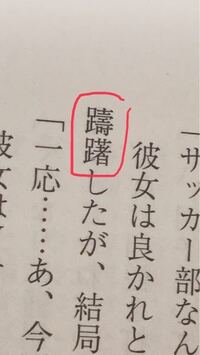 「サッカー部なん
彼女は良かれと
躊躇したが、結局
「一応……あ、今
彼女は